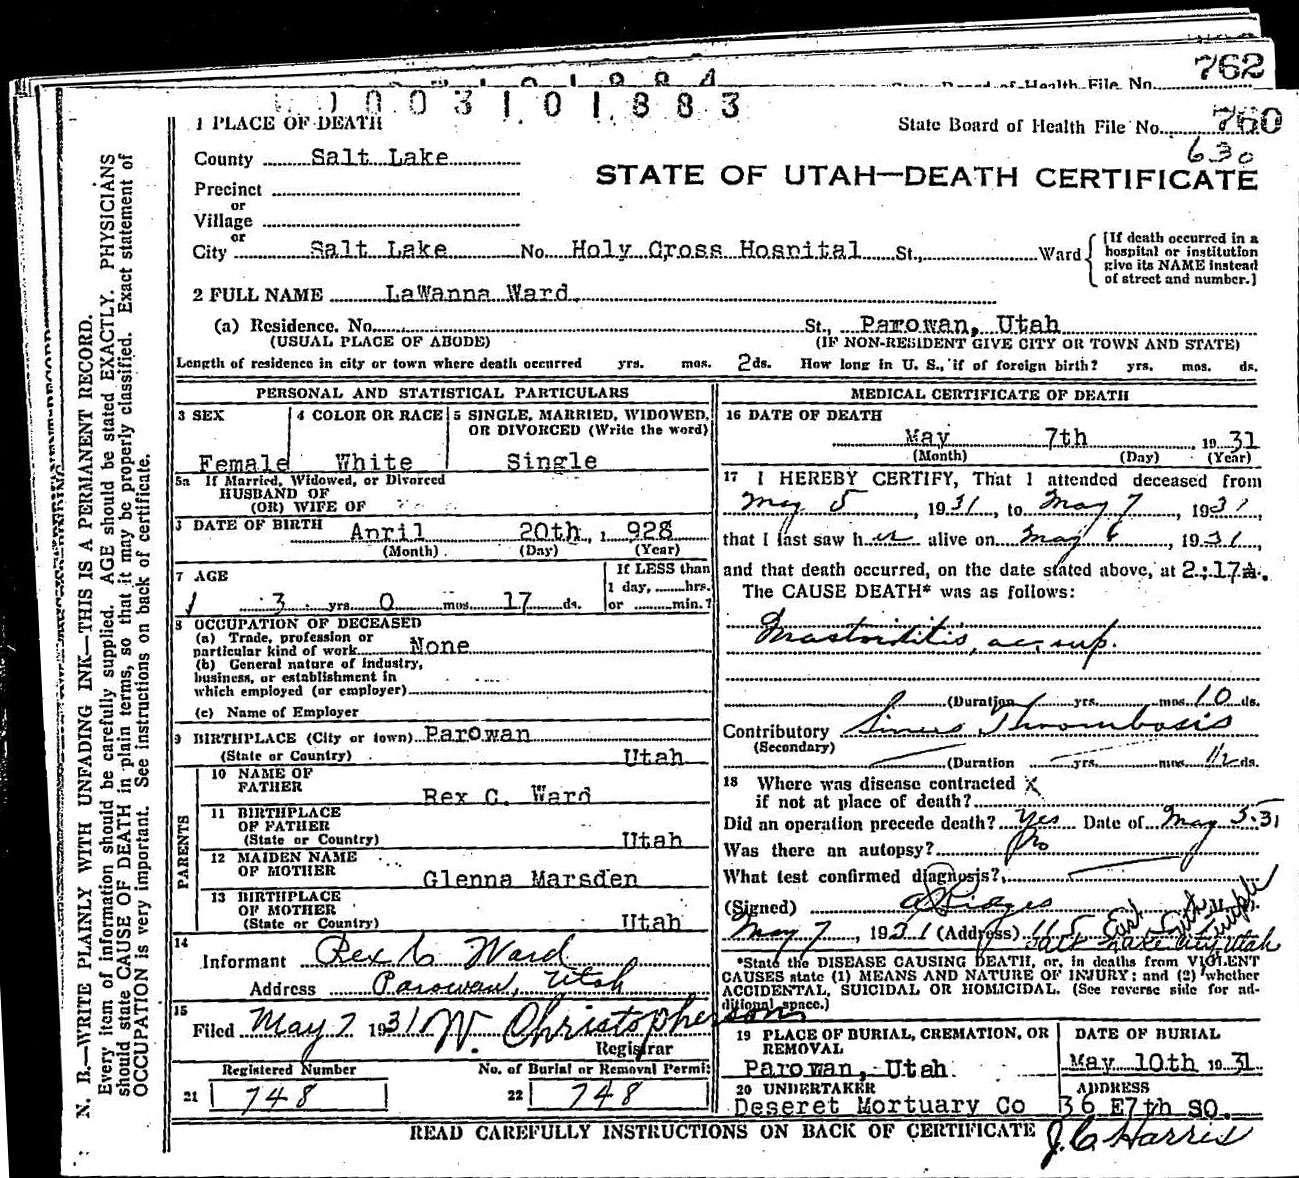 762
State Board of Health File No.
1 0 0 3 1 0 1 8 8 3
1 PLACE OF DEATH
State Board of Health File No. 760
630
County Salt Lake
STATE OF UTAH—DEATH CERTIFICATE
Precinct
or
Village
or
City Salt Lake No. Holy Cross Hospital St., Ward
[If death occurred in a hospital or institution give its NAME instead of street and number.]
2 FULL NAME LaWanna Ward
(a) Residence. No. St., Parowan, Utah
(USUAL PLACE OF ABODE) (IF NON-RESIDENT GIVE CITY OR TOWN AND STATE)
Length of residence in city or town where death occurred yrs. mos. 2 ds. How long in U. S., if of foreign birth? yrs. mos. ds.
PERSONAL AND STATISTICAL PARTICULARS
3 SEX 4 COLOR OR RACE 5 SINGLE, MARRIED, WIDOWED, OR DIVORCED (Write the word)
Female White Single
5a If Married, Widowed, or Divorced
HUSBAND OF
(OR) WIFE OF
DATE OF BIRTH April 20th, 1 928
(Month) (Day) (Year)
7 AGE
If LESS than
1 day, hrs.
or min.?
3 yrs. 0 mos. 17 ds.
8 OCCUPATION OF DECEASED
(a) Trade, profession or
particular kind of work None
(b) General nature of industry,
business, or establishment in
which employed (or employer)
(c) Name of Employer
9 BIRTHPLACE (City or town) Parowan
(State or Country) Utah
PARENTS
10 NAME OF
FATHER Rex C. Ward
11 BIRTHPLACE
OF FATHER
(State or Country) Utah
12 MAIDEN NAME
OF MOTHER Glenna Marsden
13 BIRTHPLACE
OF MOTHER
(State or Country) Utah
14
Informant Rex C Ward
Address Parowan, Utah
15
Filed May 7 1931 W. Christopherson
Registrar
Registered Number No. of Burial or Removal Permit
21 748 22 748
MEDICAL CERTIFICATE OF DEATH
16 DATE OF DEATH
May 7th 1931
(Month) (Day) (Year)
17 I HEREBY CERTIFY, That I attended deceased from
May 5, 1931, to May 7, 1931,
that I last saw her alive on May 6, 1931,
and that death occurred, on the date stated above, at 2:17 a.
The CAUSE DEATH* was as follows:
Mastoiditis, ac. sup.
(Duration yrs. mos. 10 ds.
Contributory Sinus Thrombosis
(Secondary)
(Duration yrs. mos. 1½ ds.
18 Where was disease contracted
if not at place of death?
Did an operation precede death? Yes Date of May 5-31
Was there an autopsy? No
What test confirmed diagnosis?
(Signed)
May 7, 1931 (Address) 115 East South Temple
Salt Lake City, Utah
*State the DISEASE CAUSING DEATH, or, in deaths from VIOLENT
CAUSES state (1) MEANS AND NATURE OF INJURY; and (2) whether
ACCIDENTAL, SUICIDAL OR HOMICIDAL. (See reverse side for ad-
ditional space.)
19 PLACE OF BURIAL, CREMATION, OR REMOVAL DATE OF BURIAL
Parowan, Utah May 10th 1931
20 UNDERTAKER ADDRESS
Deseret Mortuary Co 36 E 7th SO.
READ CAREFULLY INSTRUCTIONS ON BACK OF CERTIFICATE
J. C. Harris
N. B.—WRITE PLAINLY WITH UNFADING INK—THIS IS A PERMANENT RECORD.
Every item of information should be carefully supplied. AGE should be stated EXACTLY. PHYSICIANS
should state CAUSE OF DEATH in plain terms, so that it may be properly classified. Exact statement of
OCCUPATION is very important. See instructions on back of certificate.